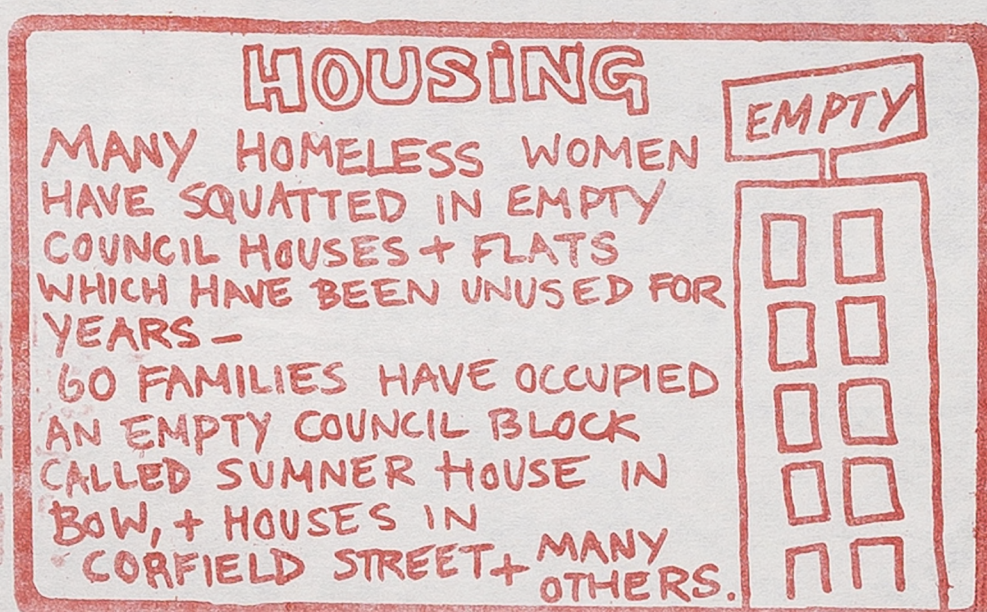 HOUSiNG
EMPTY
MANY HOMELESS WOMEN
HAVE SQUATTED IN EMPTY
COUNCIL HOUSES + FLATS
WHICH HAVE BEEN UNUSED FOR
YEARS –
60 FAMILIES HAVE OCCUPIED
AN EMPTY COUNCIL BLOCK
CALLED SUMNER HOUSE IN
BOW, + HOUSES IN
CORFIELD STREET + MANY
OTHERS.